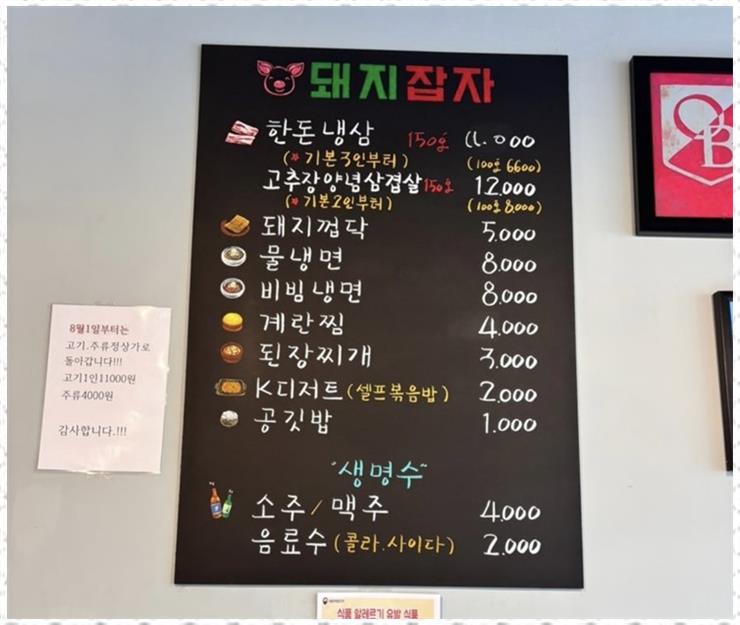 돼지잡자
한돈냉삼 150g 11.000
(*기본3인부터) (100g 6600)
고추장양념삼겹살 150g 12.000
(*기본2인부터) (100g 8,000)
돼지껍닥 5.000
물냉면 8.000
비빔냉면 8.000
계란찜 4.000
된장찌개 3.000
K디저트(셀프볶음밥) 2.000
공깃밥 1.000
"생명수"
소주/맥주 4.000
음료수(콜라.사이다) 2.000
8월1일부터는
고기.주류정상가로
돌아갑니다!!!
고기1인11000원
주류4000원
감사합니다.!!!
식품 알레르기 유발 식품